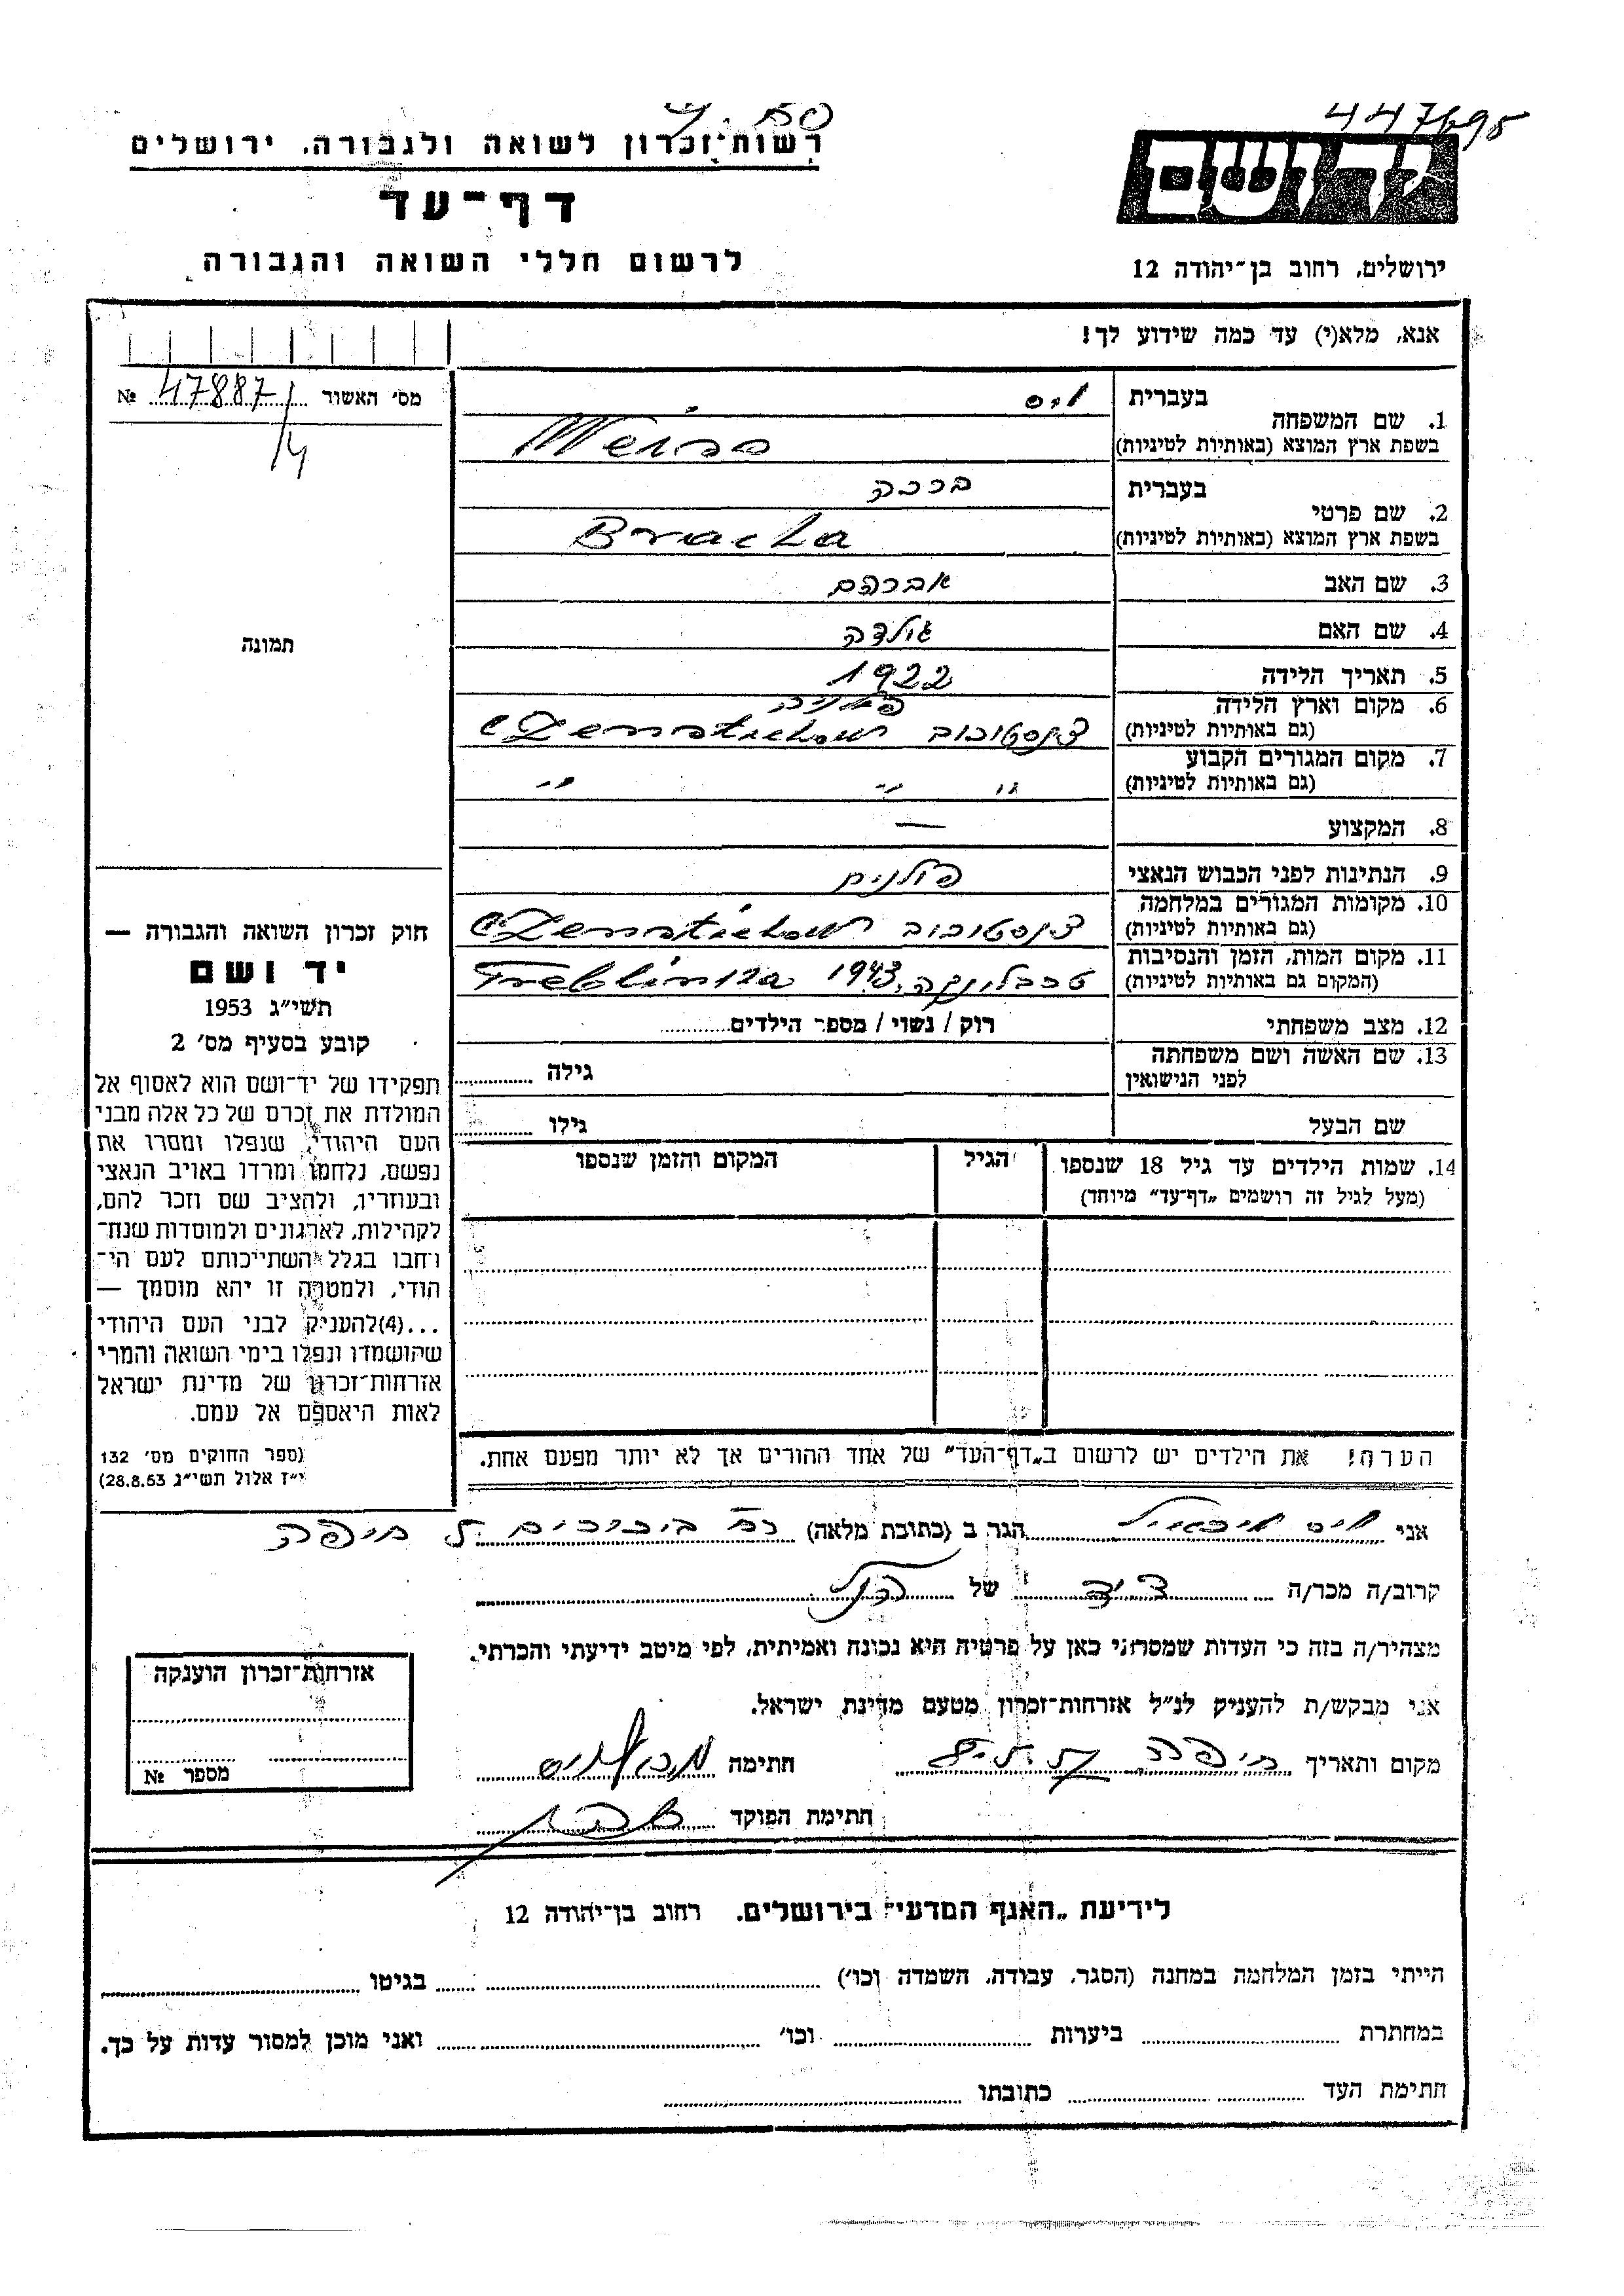 447695
רשות־זכרון לשואה ולגבורה. ירושלים
יד ושם
דף־עד
לרשום חללי השואה והגבורה
ירושלים, רחוב בן־יהודה 12
אנא, מלא(י) עד כמה שידוע לך!
מס׳ האשור 47887/4 №
תמונה
1. שם המשפחה
בעברית
בשפת ארץ המוצא (באותיות לטיניות) Weiss
2. שם פרטי
בעברית ברכה
בשפת ארץ המוצא (באותיות לטיניות) Bracha
3. שם האב אברהם
4. שם האם גולדה
5. תאריך הלידה 1922
6. מקום וארץ הלידה פולניה
(גם באותיות לטיניות) צ'נסטוכוב Czenstichow
7. מקום המגורים הקבוע
(גם באותיות לטיניות) " " "
8. המקצוע —
9. הנתינות לפני הכבוש הנאצי פולנית
10. מקומות המגורים במלחמה
(גם באותיות לטיניות) צ'נסטוכוב Czenstichow
11. מקום המות, הזמן והנסיבות
(המקום גם באותיות לטיניות) טרבלינקה, 1943 Treblinka
12. מצב משפחתי רוק / נשוי / מספר הילדים
13. שם האשה ושם משפחתה גילה
לפני הנישואין
שם הבעל גילו
14. שמות הילדים עד גיל 18 שנספו הגיל המקום והזמן שנספו
(מעל לגיל זה רושמים „דף־עד” מיוחד)
הערה! את הילדים יש לרשום ב„דף־העד” של אחד ההורים אך לא יותר מפעם אחת.
חוק זכרון השואה והגבורה —
יד ושם
תשי״ג 1953
קובע בסעיף מס׳ 2
תפקידו של יד־ושם הוא לאסוף אל
המולדת את זכרם של כל אלה מבני
העם היהודי, שנפלו ומסרו את
נפשם, נלחמו ומרדו באויב הנאצי
ובעוזריו, ולהציב שם וזכר להם,
לקהילות, לארגונים ולמוסדות שנח־
רחבו בגלל השתייכותם לעם הי־
הודי, ולמטרה זו יהא מוסמך —
...(4)להעניק לבני העם היהודי
שהושמדו ונפלו בימי השואה והמרי
אזרחות־זכרון של מדינת ישראל
לאות היאספם אל עמם.
(ספר החוקים מס׳ 132
י״ז אלול תשי״ג 28.8.53)
אני וייס מיכאל הגר ב (כתובת מלאה) חיפה
קרוב/ה מכר/ה של הנ״ל
מצהיר/ה בזה כי העדות שמסרתי כאן על פרטיה היא נכונה ואמיתית, לפי מיטב ידיעתי והכרתי.
אני מבקש/ת להעניק לנ״ל אזרחות־זכרון מטעם מדינת ישראל.
מקום ותאריך חיפה חתימה
חתימת הפוקד
אזרחות־זכרון הוענקה
מספר №
לידיעת „האגף המדעי” בירושלים. רחוב בן־יהודה 12
הייתי בזמן המלחמה במחנה (הסגר, עבודה, השמדה וכו׳) בגיטו
במחתרת ביערות וכו׳ ואני מוכן למסור עדות על כך.
חתימת העד כתובתו